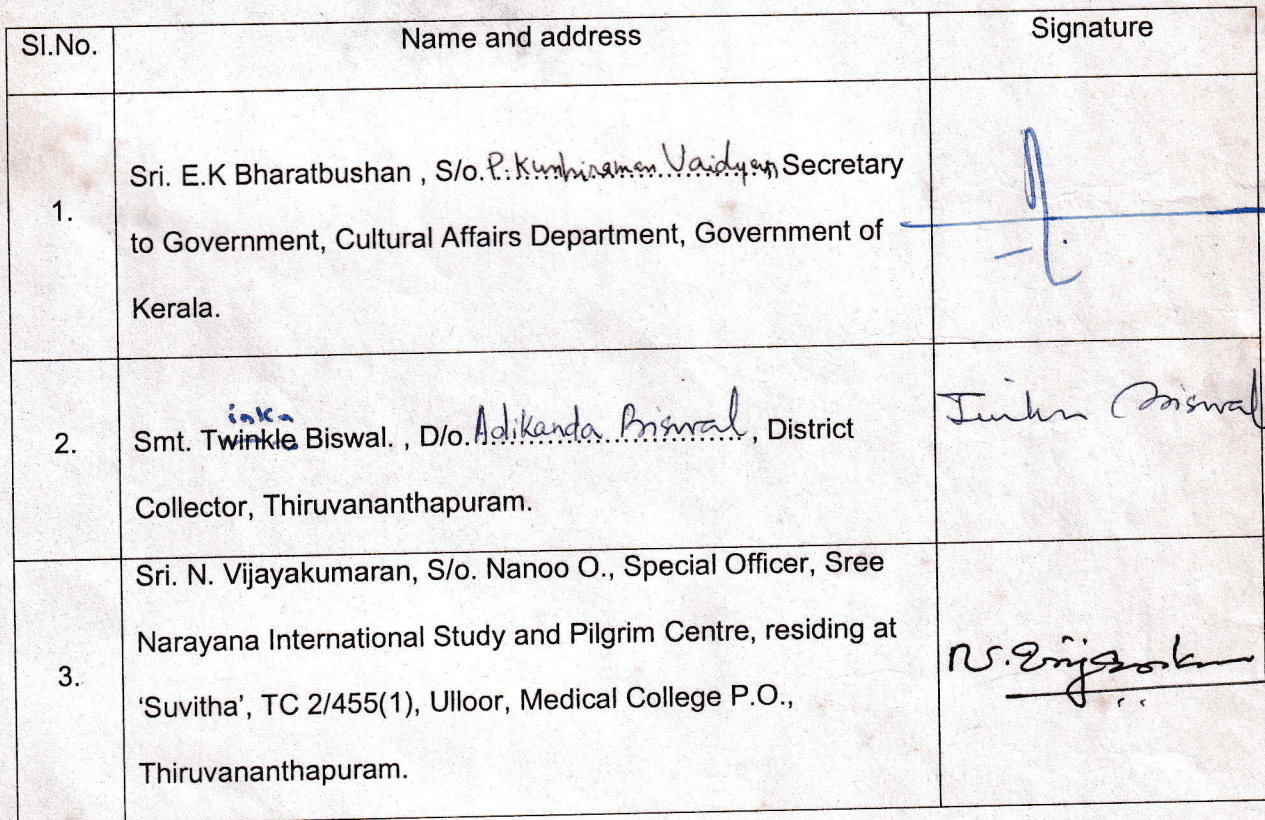 Sl.No. Name and address Signature
1. Sri. E.K Bharatbushan , S/o. P. Kunhiraman Vaidyan Secretary
to Government, Cultural Affairs Department, Government of
Kerala.
inka
2. Smt. Twinkle Biswal. , D/o. Adikanda Biswal, District
Collector, Thiruvananthapuram.
Biswal
3. Sri. N. Vijayakumaran, S/o. Nanoo O., Special Officer, Sree
Narayana International Study and Pilgrim Centre, residing at
‘Suvitha’, TC 2/455(1), Ulloor, Medical College P.O.,
Thiruvananthapuram.